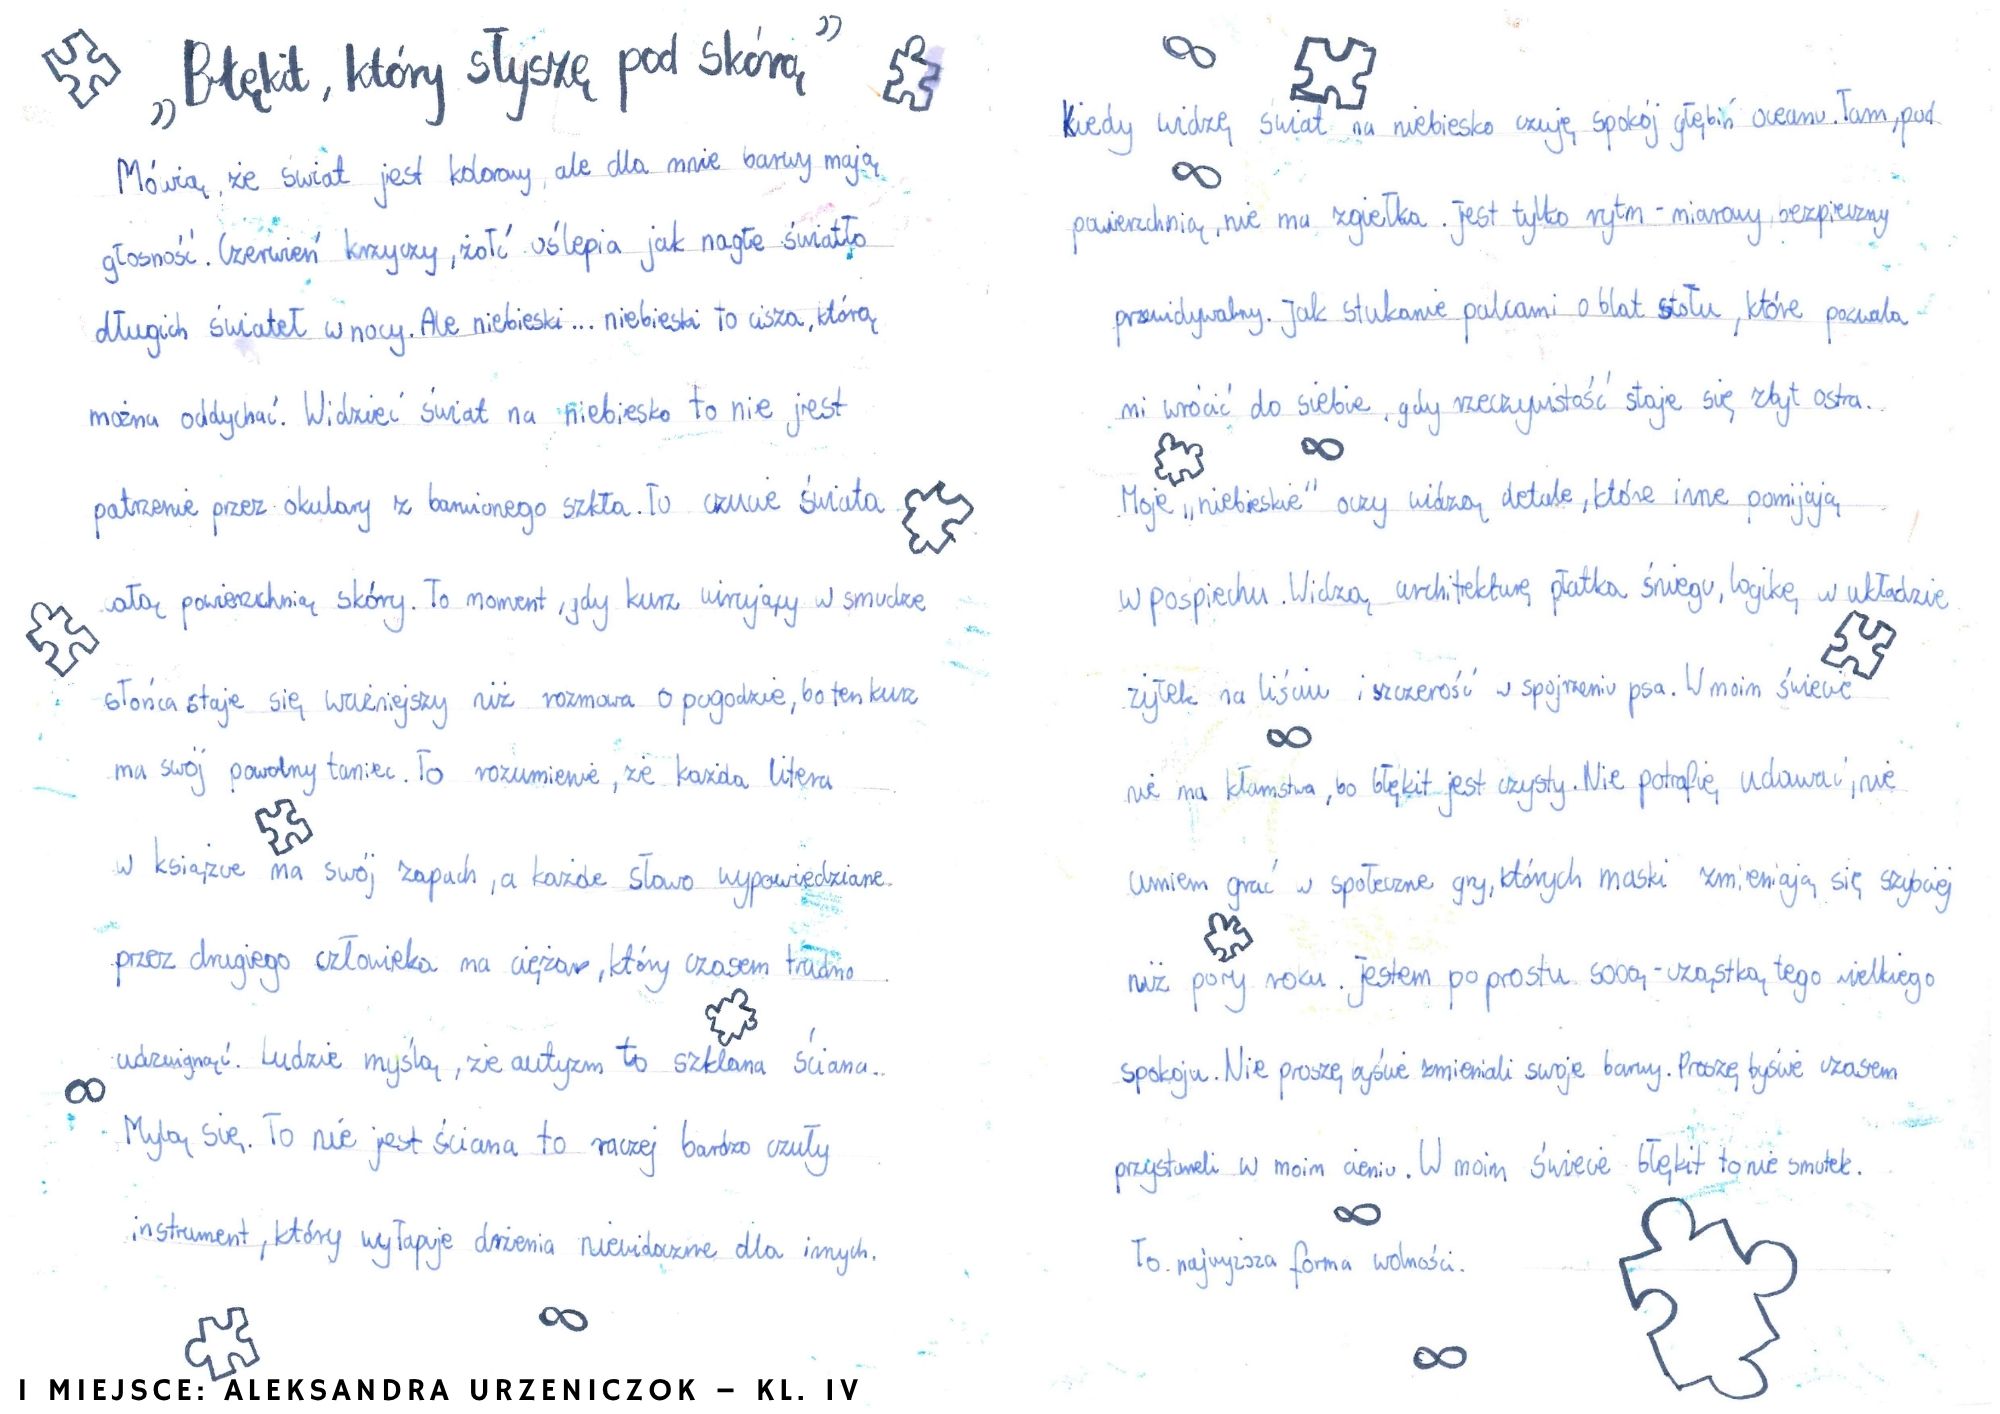 „Błękit, który słyszę pod skórą”
Mówią, że świat jest kolorowy, ale dla mnie barwy mają
głosność. Czerwień krzyczy, żółć oślepia jak nagłe światło
długich świateł w nocy. Ale niebieski... niebieski to cisza, którą
można oddychać. Widzieć świat na niebiesko to nie jest
patrzenie przez okulary z barwionego szkła. To czucie świata
całą powierzchnią skóry. To moment, gdy kurz wirujący w smudze
słońca staje się ważniejszy niż rozmowa o pogodzie, bo ten kurz
ma swój powolny taniec. To rozumienie, że każda litera
w książce ma swój zapach, a każde słowo wypowiedziane
przez drugiego człowieka ma ciężar, który czasem trudno
udźwignąć. Ludzie myślą, że autyzm to szklana ściana..
Mylą się. To nie jest ściana to raczej bardzo czuły
instrument, który wyłapuje drżenia niewidoczne dla innych.
Kiedy widzę świat na niebiesko czuję spokój głębin oceanu. Tam, pod
powierzchnią, nie ma zgiełku. Jest tylko rytm - miarowy, bezpieczny
przewidywalny. Jak stukanie palcami o blat stołu, które pozwala
mi wrócić do siebie, gdy rzeczywistość staje się zbyt ostra.
Moje „niebieskie” oczy widzą detale, które inne pomijają
w pośpiechu. Widzą architekturę płatka śniegu, logikę w układzie
żyłek na liściu i szczerość w spojrzeniu psa. W moim świecie
nie ma kłamstwa, bo błękit jest czysty. Nie potrafię udawać, nie
umiem grać w społeczne gry, których maski zmieniają się szybciej
niż pory roku. Jestem po prostu sobą - cząstką tego wielkiego
spokoju. Nie proszę byście zmieniali swoje barwy. Proszę byście czasem
przystaneli w moim cieniu. W moim świecie błękit to nie smutek.
To najwyższa forma wolności.
I MIEJSCE: ALEKSANDRA URZENICZOK – KL. IV